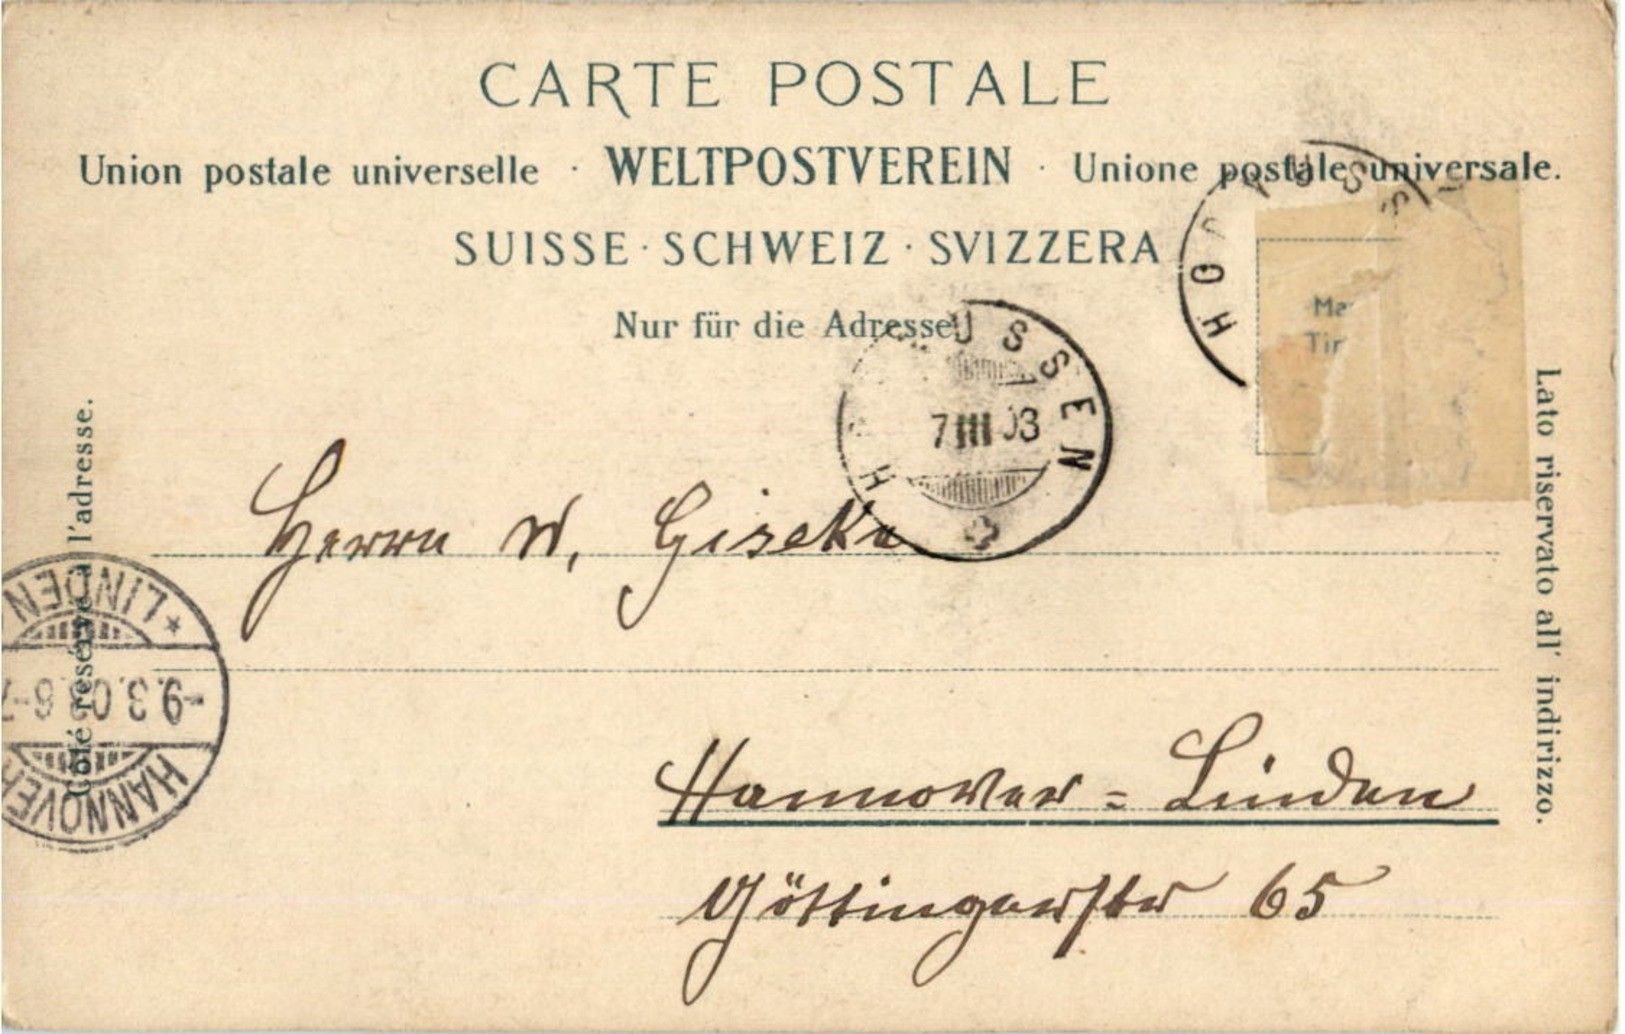 CARTE POSTALE
Union postale universelle · WELTPOSTVEREIN · Unione postale universale.
SUISSE · SCHWEIZ · SVIZZERA
Nur für die Adresse
USSEN
H
7 III 03
Côté réservé a l'adresse.
Lato riservato all' indirizzo.
Herrn W. Giseke
* LINDEN
-9.3.03.6-7
HANNOVER
Hannover = Linden
Göttingerstr 65